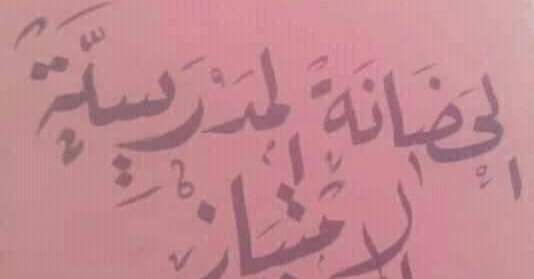 الحَضَانَة المدْرَسِيَّة
الامتياز